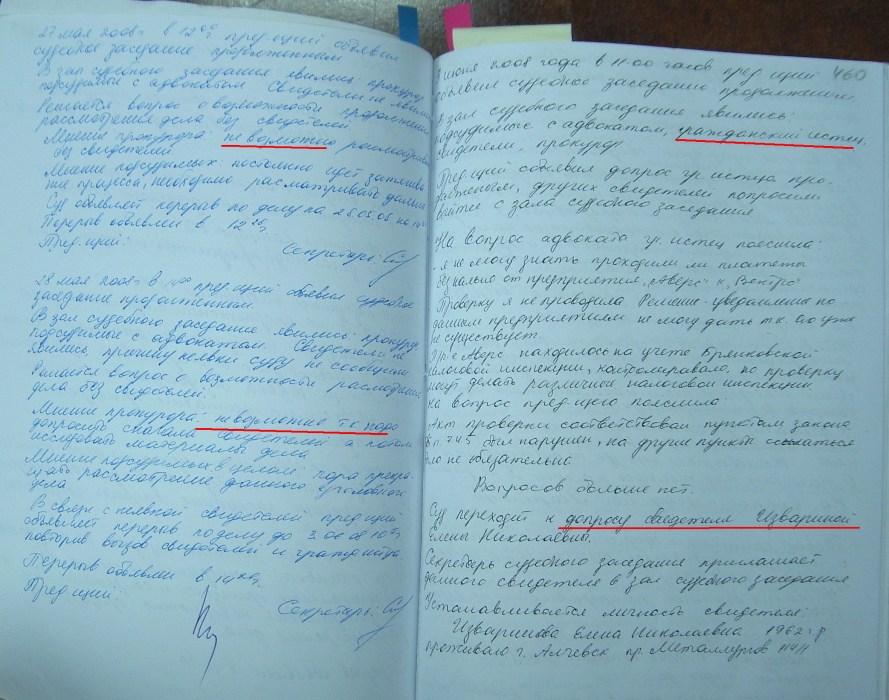 27 мая 2008г в 12 00 пред-щий объявил
судебное заседание продолженным
В зал судебного заседания явились: прокурор
подсудимые с адвокатом. Свидетели не явились
Решается вопрос о возможности продолжения
рассмотрения дела без свидетелей
Мнение прокурора: не возможно рассматривать
без свидетелей
Мнение подсудимых: постоянно идет затягива-
ние процесса, необходимо рассматривать дальше
Суд объявляет перерыв по делу на 28.05.08 на
Перерыв объявлен в 12
Пред-щий:
Секретарь:
28 мая 2008г в пред-щий объявил судебное
заседание продолженным.
В зал судебного заседания явились: прокурор
подсудимые с адвокатом. Свидетели не
явились, причину неявки суду не сообщили
Решается вопрос о возможности рассмотрения
дела без свидетелей.
Мнение прокурора: невозможно т.к. надо
допросить сначала свидетелей а потом
исследовать материалы дела
Мнение подсудимых в целом пора прекра-
щать рассмотрение данного уголовного
дела
В связи с неявкой свидетелей пред-щий
объявляет перерыв по делу до 3.06.08
повторив вызов свидетелей и гражд истца
Перерыв объявлен в
Пред-щий:
Секретарь:
460
3 июня 2008 года в 11-00 часов пред-щий
объявил судебное заседание продолженным.
В зал судебного заседания явились:
подсудимые с адвокатом, гражданский истец,
свидетели, прокурор
Пред-щий объявил допрос гр. истца про-
должением, других свидетелей попросили
выйти с зала судебного заседания
На вопрос адвоката гр. истец пояснила:
- я не могу знать проходили ли платежи
безнально от предприятия "Аверс" к "Вектро"
Проверку я не проводила Решение-уведомление по
данным предприятием не могу дать т.к. его уже
не существует.
Пр-е Аверс находилось на учете Брянковской
налоговой инспекции, контролировало, но проверку
могут делать различные налоговые инспекции.
На вопрос пред-щего пояснила:
Акт проверки соответствовал пунктам закона
п. 7.4.5 был нарушен, на другие пункты ссылаться
было не обязательно.
Вопросов больше нет.
Суд переходит к допросу свидетеля Извариной
Елены Николаевны.
Секретарь судебного заседания приглашает
данного свидетеля в зал судебного заседания
Устанавливается личность свидетеля:
Елена Николаевна 1962 г.р
проживаю г. Алчевск пр. Металлургов